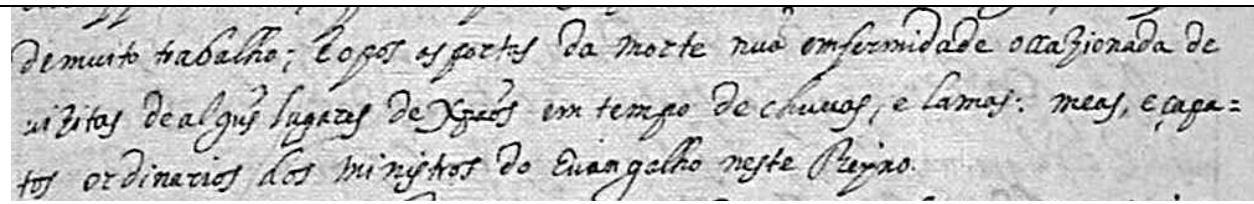 de muito trabalho; e o pos as portas da morte nuã emfermidade occazionada de
vizitas de algũs lugares de Xpãos em tempo de chuvas, e lamas: meas, e çapa=
tos ordinarios dos ministros do Evangelho neste Reyno.